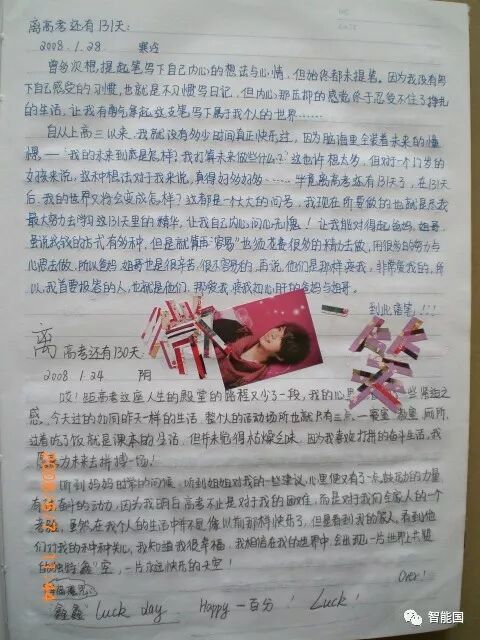 离高考还有131天:
2008.1.28 寒冷
曾多次想提起笔写下自己内心的想法与心情,但始终都未提笔。因为我没有写
下自己感受的习惯,也就是不习惯写日记,但内心那压抑的感觉终于忍受不住了挣扎
的生活,让我有勇气拿起这支笔写下属于我个人的世界……
自从上高三以来,我就没有多少时间真正快乐过,因为脑海里全装着未来的憧
憬——"我的未来到底是怎样?我打算未来做些什么?"这也许想太多,但对一个17岁的
女孩来说,这种想法对于我来说,真得好多好多……毕竟离高考还有131天了,在131天
后,我的世界又将会变成怎样?这都是一个大大的问号,我现在所要做的也就是尽我
最大努力去学习这131天里的精华,让我自己内心问心无愧!让我能对得起爸妈、姐哥,
虽说
的方式有多种,但是就算再"容易"也须花费很多的精力去做,用很多的努力与
心思去做,所以爸妈、姐哥也是很辛苦,很不容易的,再说,他们是那样疼我,非常爱我的,所
以,我首要报答的人,也就是他们,那爱我、疼我、如心肝的爸妈与姐哥。
到此落笔!!!
离高考还有130天.
2008.1.24 阴
哎!距高考这座人生的殿堂的路程又少了一段,我的心里
紧迫之
感,今天过的如同昨天一样的生活,整个人的活动场所也就只有三点——寝室、教室、厕所,
过着吃了饭就是课本的生活,但并未觉得枯燥乏味,因为我喜欢打拼的奋斗生活,我
力为未来去拼搏一场!
听到妈妈时常的问候,听到姐姐对我的一些建议,心里便又有了一点鼓动的力量
有了奋斗的动力,因为我明白高考不止是对于我的困难,而是对于我们全家人的一个
考验,虽然在我个人的生活中并不是像以前那样快乐了,但是看到我的家人,看到他
们对我的种种关心,我知道我很幸福,我相信在我的世界中,会出现一片世界上亮丽
的独特"鑫"空,一片永远快乐的天空!
Over!
"鑫鑫" Luck day Happy 一百分! Luck!
智能国